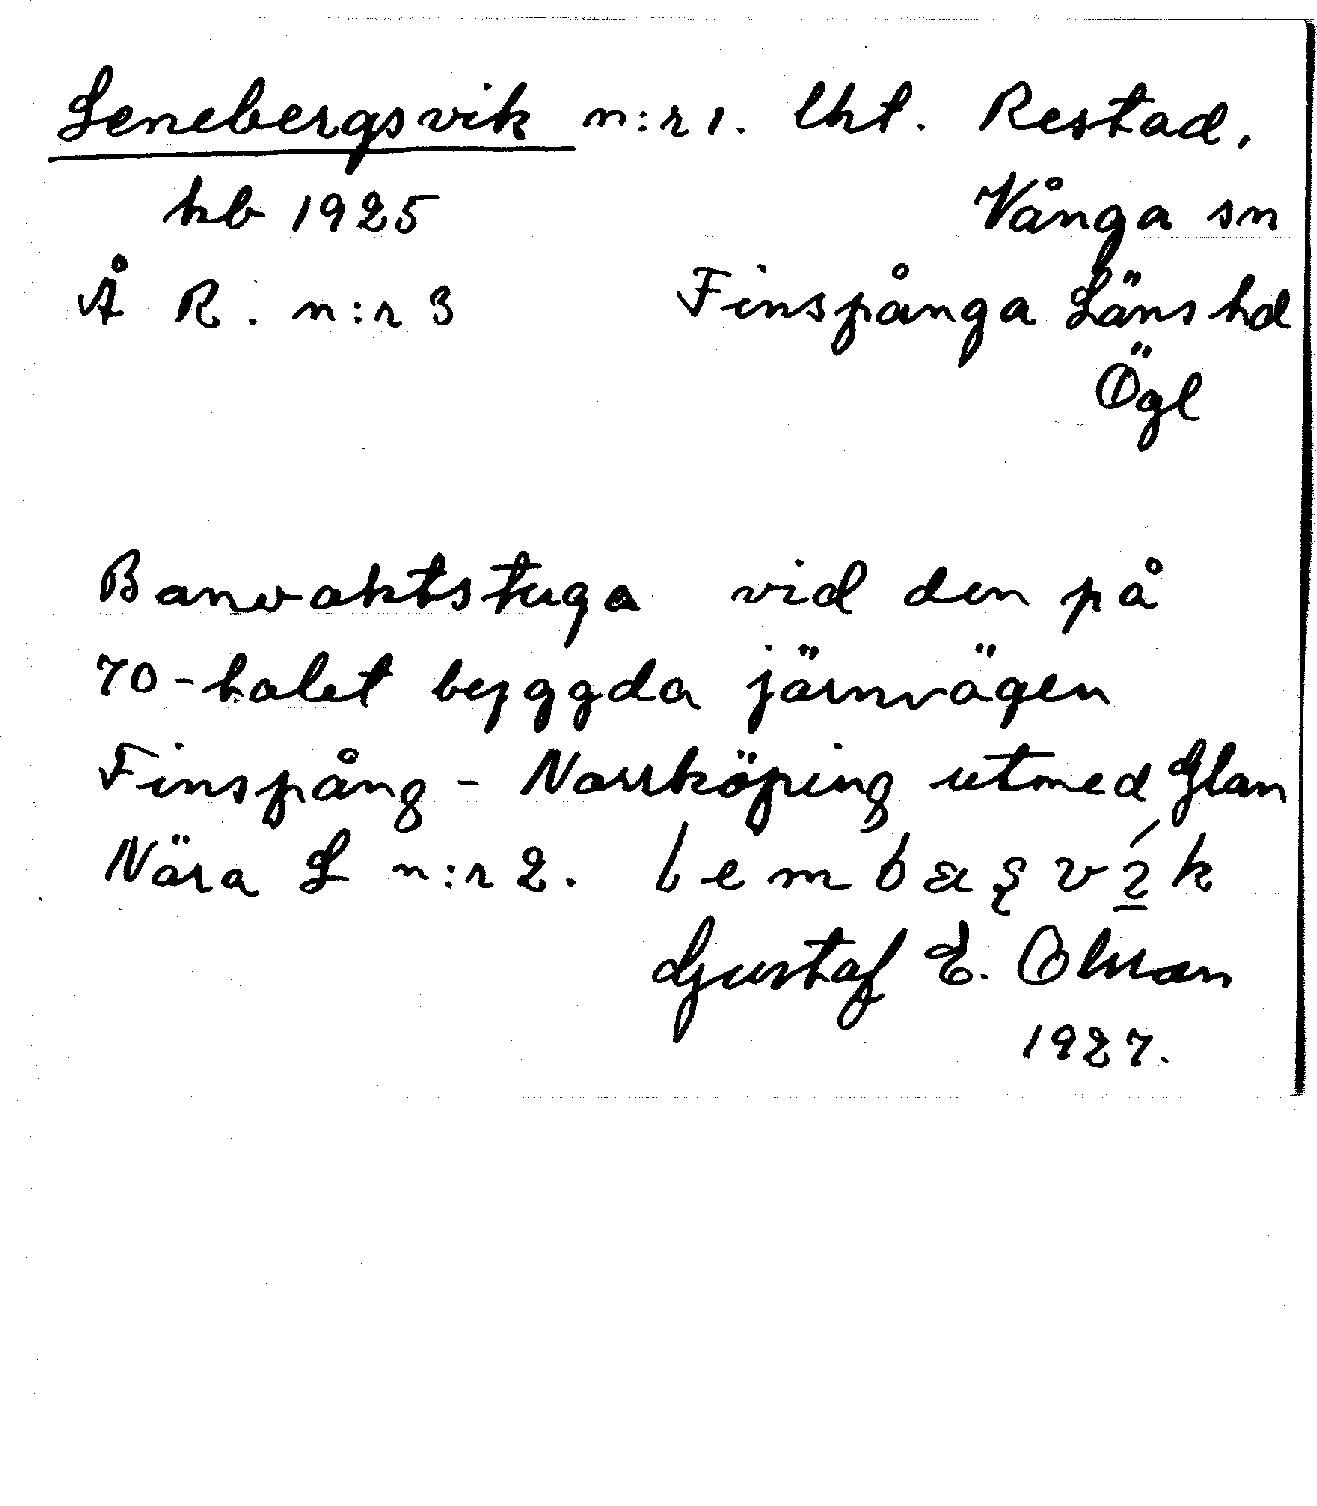 Lenebergsvik n:r 1. lht. Restad,
kb 1925 Vånga sn
Å R. n:r 3 Finspånga Läns hd
Ögl
Banvaktstuga vid den på
70-talet byggda järnvägen
Finspång - Norrköping utmed Glan
Nära L n:r 2.
Gustaf E. Olsson
1927.